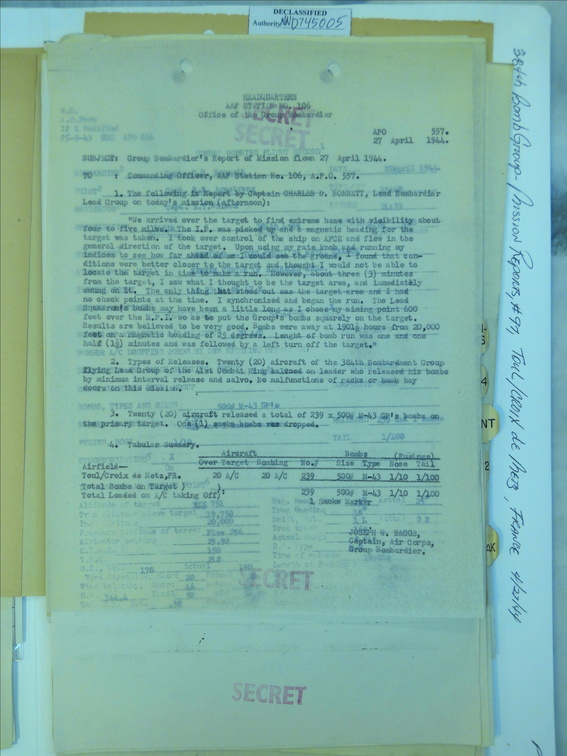 DECLASSIFIED
Authority NND745005
HEADQUARTERS
AAF STATION NO. 106
Office of the Group Bombardier
SECRET
SECRET
APO 557.
27 April 1944.
SUBJECT: Group Bombardier's Report of Mission flown 27 April 1944.
TO : Commanding Officer, AAF Station No. 106, A.P.O. 557.
1. The following is Report by Captain CHARLES D. Lead Bombardier
Lead Group on today's mission (afternoon):
"We arrived over the target to find extreme haze with visibility about
four to five miles. The I.P. was picked up and a magnetic heading for the
target was taken. I took over control of the ship on AFCE and flew in the
general direction of the target. Upon using my rate knob and running my
indices to see how far ahead of me I could see the ground, I found that con-
ditions were better closer to the target and thought I would not be able to
locate the target in time to make a run. However, about three (3) minutes
from the target, I saw what I thought to be the target area, and immediately
swung on it. The only thing that stood out was the target area and I had
no check points at the time. I synchronised and began the run. The Lead
Squadron's bombs may have been a little long as I chose my aiming point 600
feet over the M.P.I. so as to put the Group's bombs squarely on the target.
Results are believed to be very good. Bombs were away at 1901½ hours from 20,000
feet on a magnetic heading of 25 degrees. Lenght of bomb run was one and one
half (1½) minutes and was followed by a left turn off the target."
2. Types of Releases. Twenty (20) aircraft of the 384th Bombardment Group
flying Lead Group of the 41st Combat Wing salvoed on leader who released his bombs
by minimum interval release and salvo. No malfunctions of racks or bomb bay
doors on this mission.
3. Twenty (20) aircraft released a total of 239 x 500# M-43 GP's bombs on
the primary target. One (1) smoke bombs was dropped.
4. Tabular Summary.
Aircraft Bombs (Fusings)
Over Target Bombing No. Size Type Nose Tail
Airfield—
Toul/Croix de Metz, FR. 20 A/C 20 A/C 239 500# M-43 1/10 1/100
Total Bombs on Target )
Total Loaded on A/C taking Off): 239 500# M-43 1/10 1/100
1 Smoke Marker
JOSEPH W. BAGGS,
Captain, Air Corps,
Group Bombardier.
SECRET
SECRET
384th Bomb Group - Mission Reports, #97, Toul/Croix de Metz, France 4/27/44